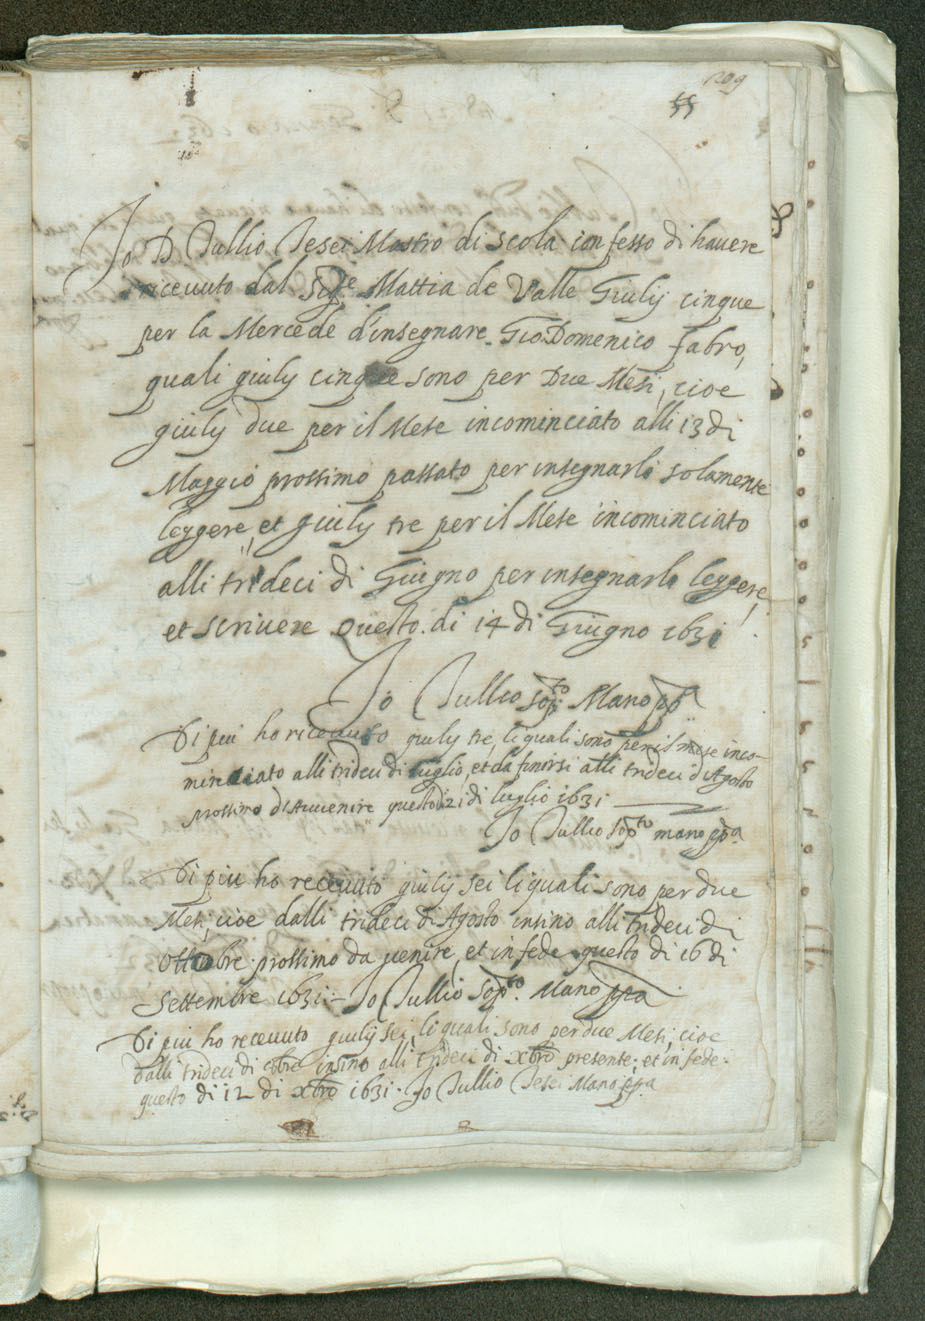 209
55
Io D Tullio Tesei Mastro di scola confesso di havere
ricevuto dal Sigre Mattia de Valle Giulij cinque
per la Mercede d'insegnare Gio Domenico fabro,
quali giulij cinque sono per Due Mesi, cioe
giulij due per il Mese incominciato alli 13 di
Maggio prossimo passato per insegnarli solamente
leggere, et giulij tre per il Mese incominciato
alli trideci di Giugno per insegnarlo leggere,
et scrivere Questo. di 14 di Giugno 1631
Io Tullio sopto Mano ppa
Di piu ho ricevuto giulij tre, li quali sono per il mese inco-
minciato alli trideci di luglio, et da finirsi alli trideci d'Agosto
prossimo d'Auvenire questo di 21 di luglio 1631
Io Tullio sopto mano ppa.
Di piu ho recevuto giulij sei li quali sono per due
Mesi, cioe dalli trideci di Agosto insino alli trideci di
ottobre prossimo da venire, et in fede questo di 16 di
Settembre 1631 - Io Tullio sopto. Mano ppa
Di piu ho recevuto giulij sei, li quali sono per due Mesi, cioe
dalli trideci di 8bre insino alli trideci di Xbro presente; et in fede.
questo di 12 di Xbro 1631. Io Tullio Tesei Mano ppa.